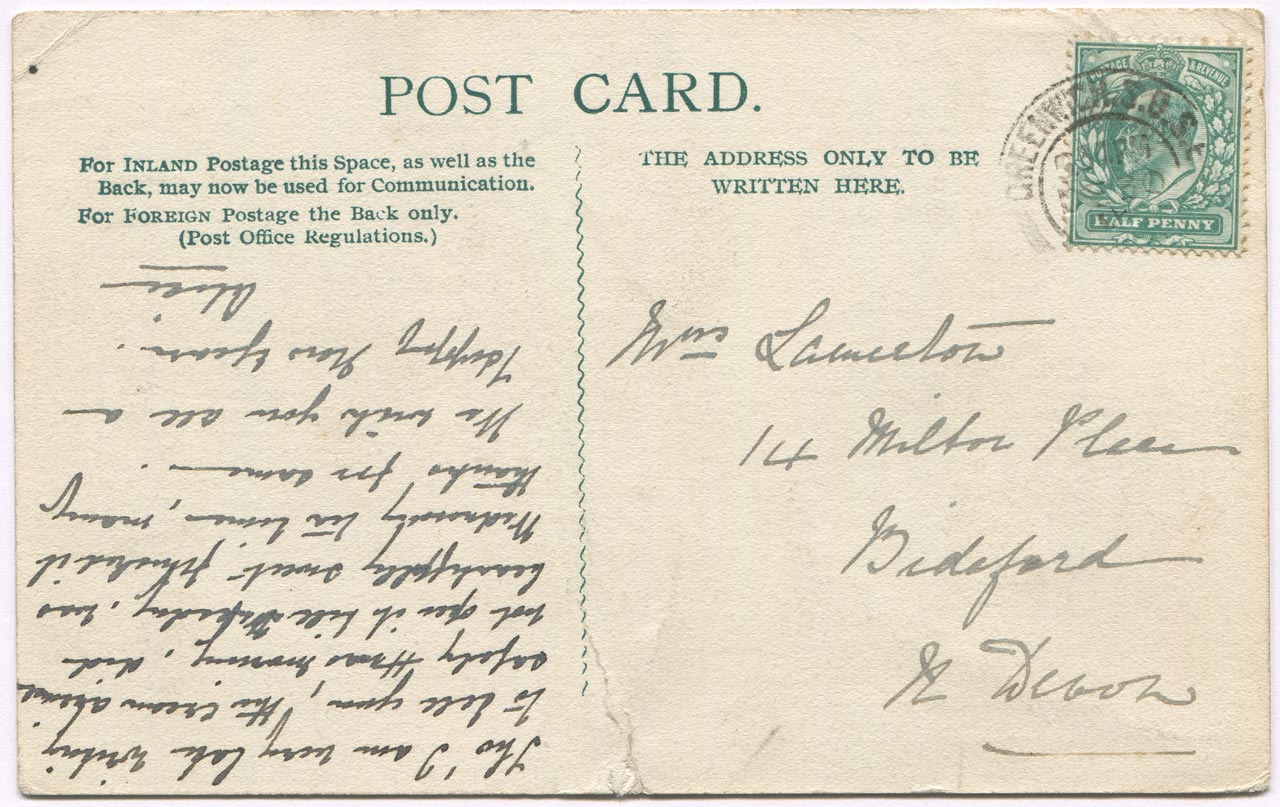 POST CARD.
For INLAND Postage this Space, as well as the
Back, may now be used for Communication.
For FOREIGN Postage the Back only.
(Post Office Regulations.)
THE ADDRESS ONLY TO BE
WRITTEN HERE.
POSTAGE & REVENUE
HALF PENNY
GREENWICH. S.O. S.E
Mrs Lamerton
14 Milton Place
Bideford
N Devon
Tho' I am very late writing
to tell you, the cream arrived
safely Xmas morning, did
not open it till Tuesday, was
beautifully sweet finished it
Wednesday tea time, many
thanks for same.
We wish you all a
Happy New Year.
Alice